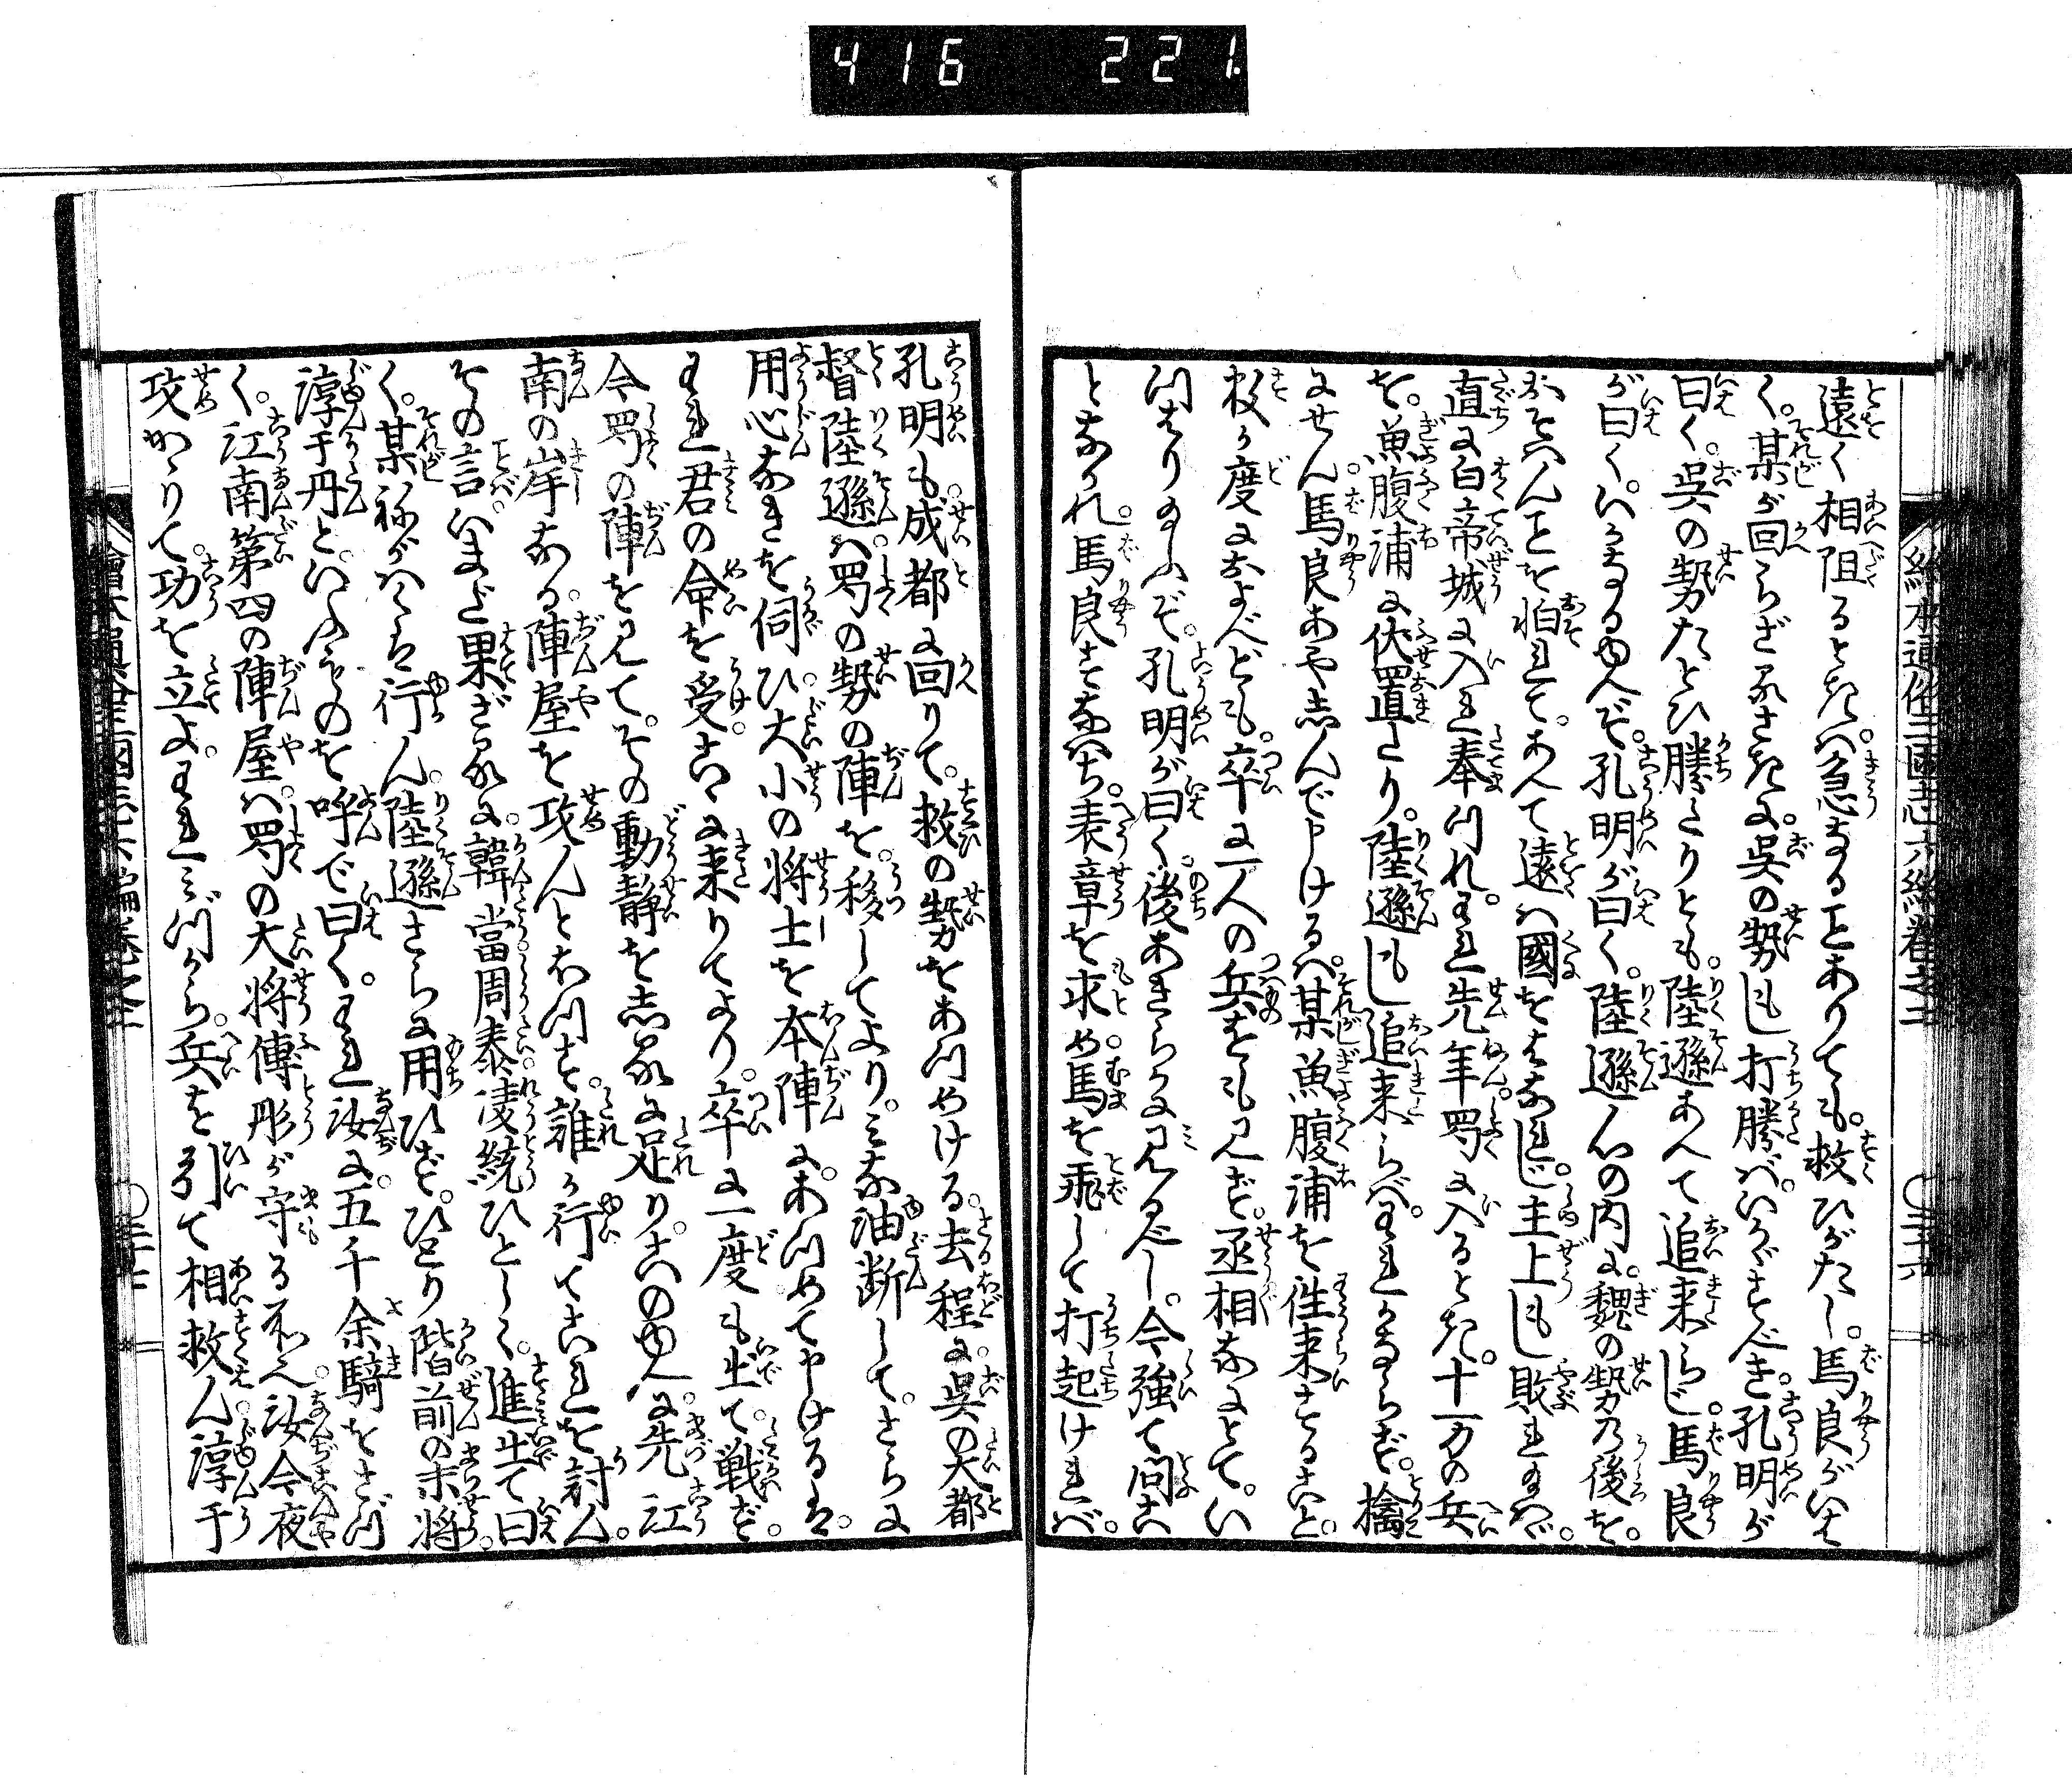 416 221.
繪本通俗三國志六編卷之二 〇三十六
遠く相阻るときハ。急なることありても。救ひがたし。馬良がいは
く。某が回らざるさきに。呉の勢もし打勝バ。いかゞすべき。孔明が
曰く。呉の勢たとひ勝たりとも。陸遜あへて追来らじ。馬良
が曰く。いかなるゆへぞ。孔明が曰く。陸遜心の内に。魏の勢乃後を。
おそハんことを怕れて。あへて遠ハ國をはなれじ。主上もし敗れ玉ハゞ。
直に白帝城に入れ奉つれ。われ先年蜀に入るとき。十万の兵
を。魚腹浦に伏置たり。陸遜もし追来らバ。われかならず。擒
にせん。馬良あやしんで申けるハ。某魚腹浦を往来すること。
数ヶ度におよべども。卒に一人の兵をも見ず。丞相なにとて。い
つはり玉ふぞ。孔明が曰く。後あきらかに見るべし。今強て問こ
となかれ。馬良すなハち。表章を求め。馬を飛して打起けれバ。
孔明も。成都に回りて。救の勢をあつめける。去程に。呉の大都
督陸遜ハ。蜀の勢の陣を。移してより。ミな油断して。さらに
用心なきを伺ひ。大小の将士を本陣に。あつめて申けるは。
われ君の命を受。こゝに来りてより。卒に一度も出て。戦ず。
今蜀の陣を見て。その動静をしるに足り。このゆへに。先江
南の岸なる。陣屋を攻んとおつす。誰か行てこれを討ん。
その言。いまだ果ざるに。韓當周泰凌統ひとしく。進出て曰
く。某ねがハくは行ん。陸遜さらに用ひず。ひとり階前の末将。
淳于丹と。いふものを呼で曰く。われ汝に。五千余騎をさづ
く。江南第四の陣屋ハ。蜀の大将傅彤が守る所へ。汝今夜
攻かゝりて。功を立よ。われミづから。兵を引て相救ん。淳于
繪本通俗三國志六編卷之二 〇三十七